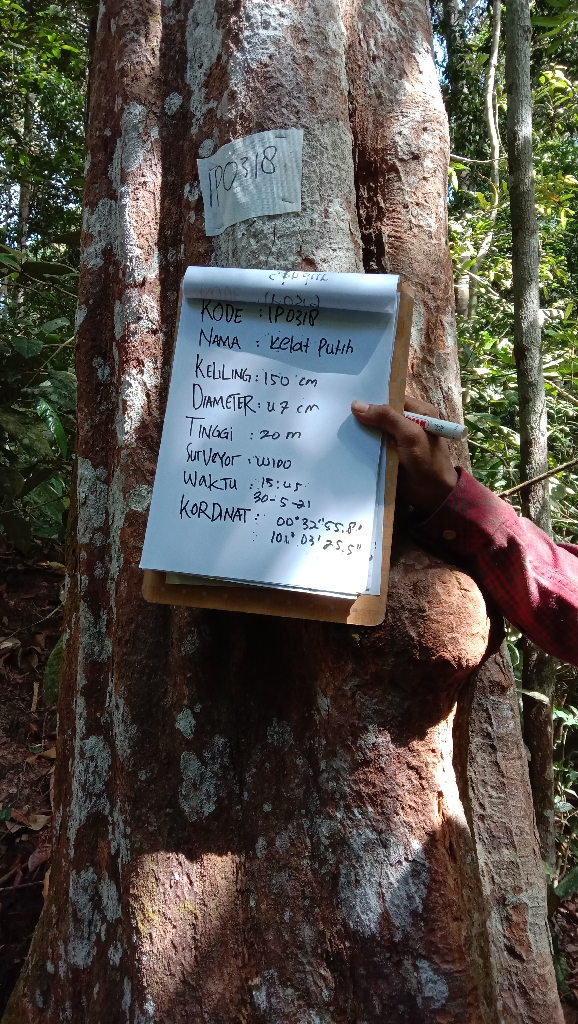 IP0318
KODE : IP0318
NAMA : Kelat Putih
KELILING : 150 cm
DIAMETER : 47 cm
TINGGI : 20 m
Surveyor : WIDO
WAKTU : 15:45
30-5-21
KORDINAT : 00° 32' 55.8"
: 101° 03' 25.5"